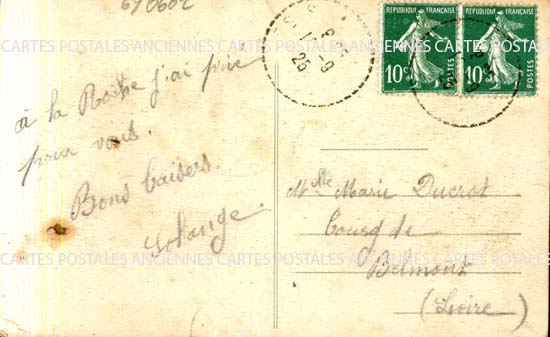 670602
à la Roche j'ai prié
pour vous.
Bons baisers.
Solange.
RÉPUBLIQUE FRANÇAISE
10c POSTES
RÉPUBLIQUE FRANÇAISE
10c POSTES
25
Mlle Marie Ducrot
Bourg de
Belmont
(Loire)
CARTES POSTALES ANCIENNES CARTES POSTALES ANCIENNES CARTES POSTALES ANCIENNES
CARTES POSTALES ANCIENNES CARTES POSTALES ANCIENNES CARTES POSTALES ANCIENNES